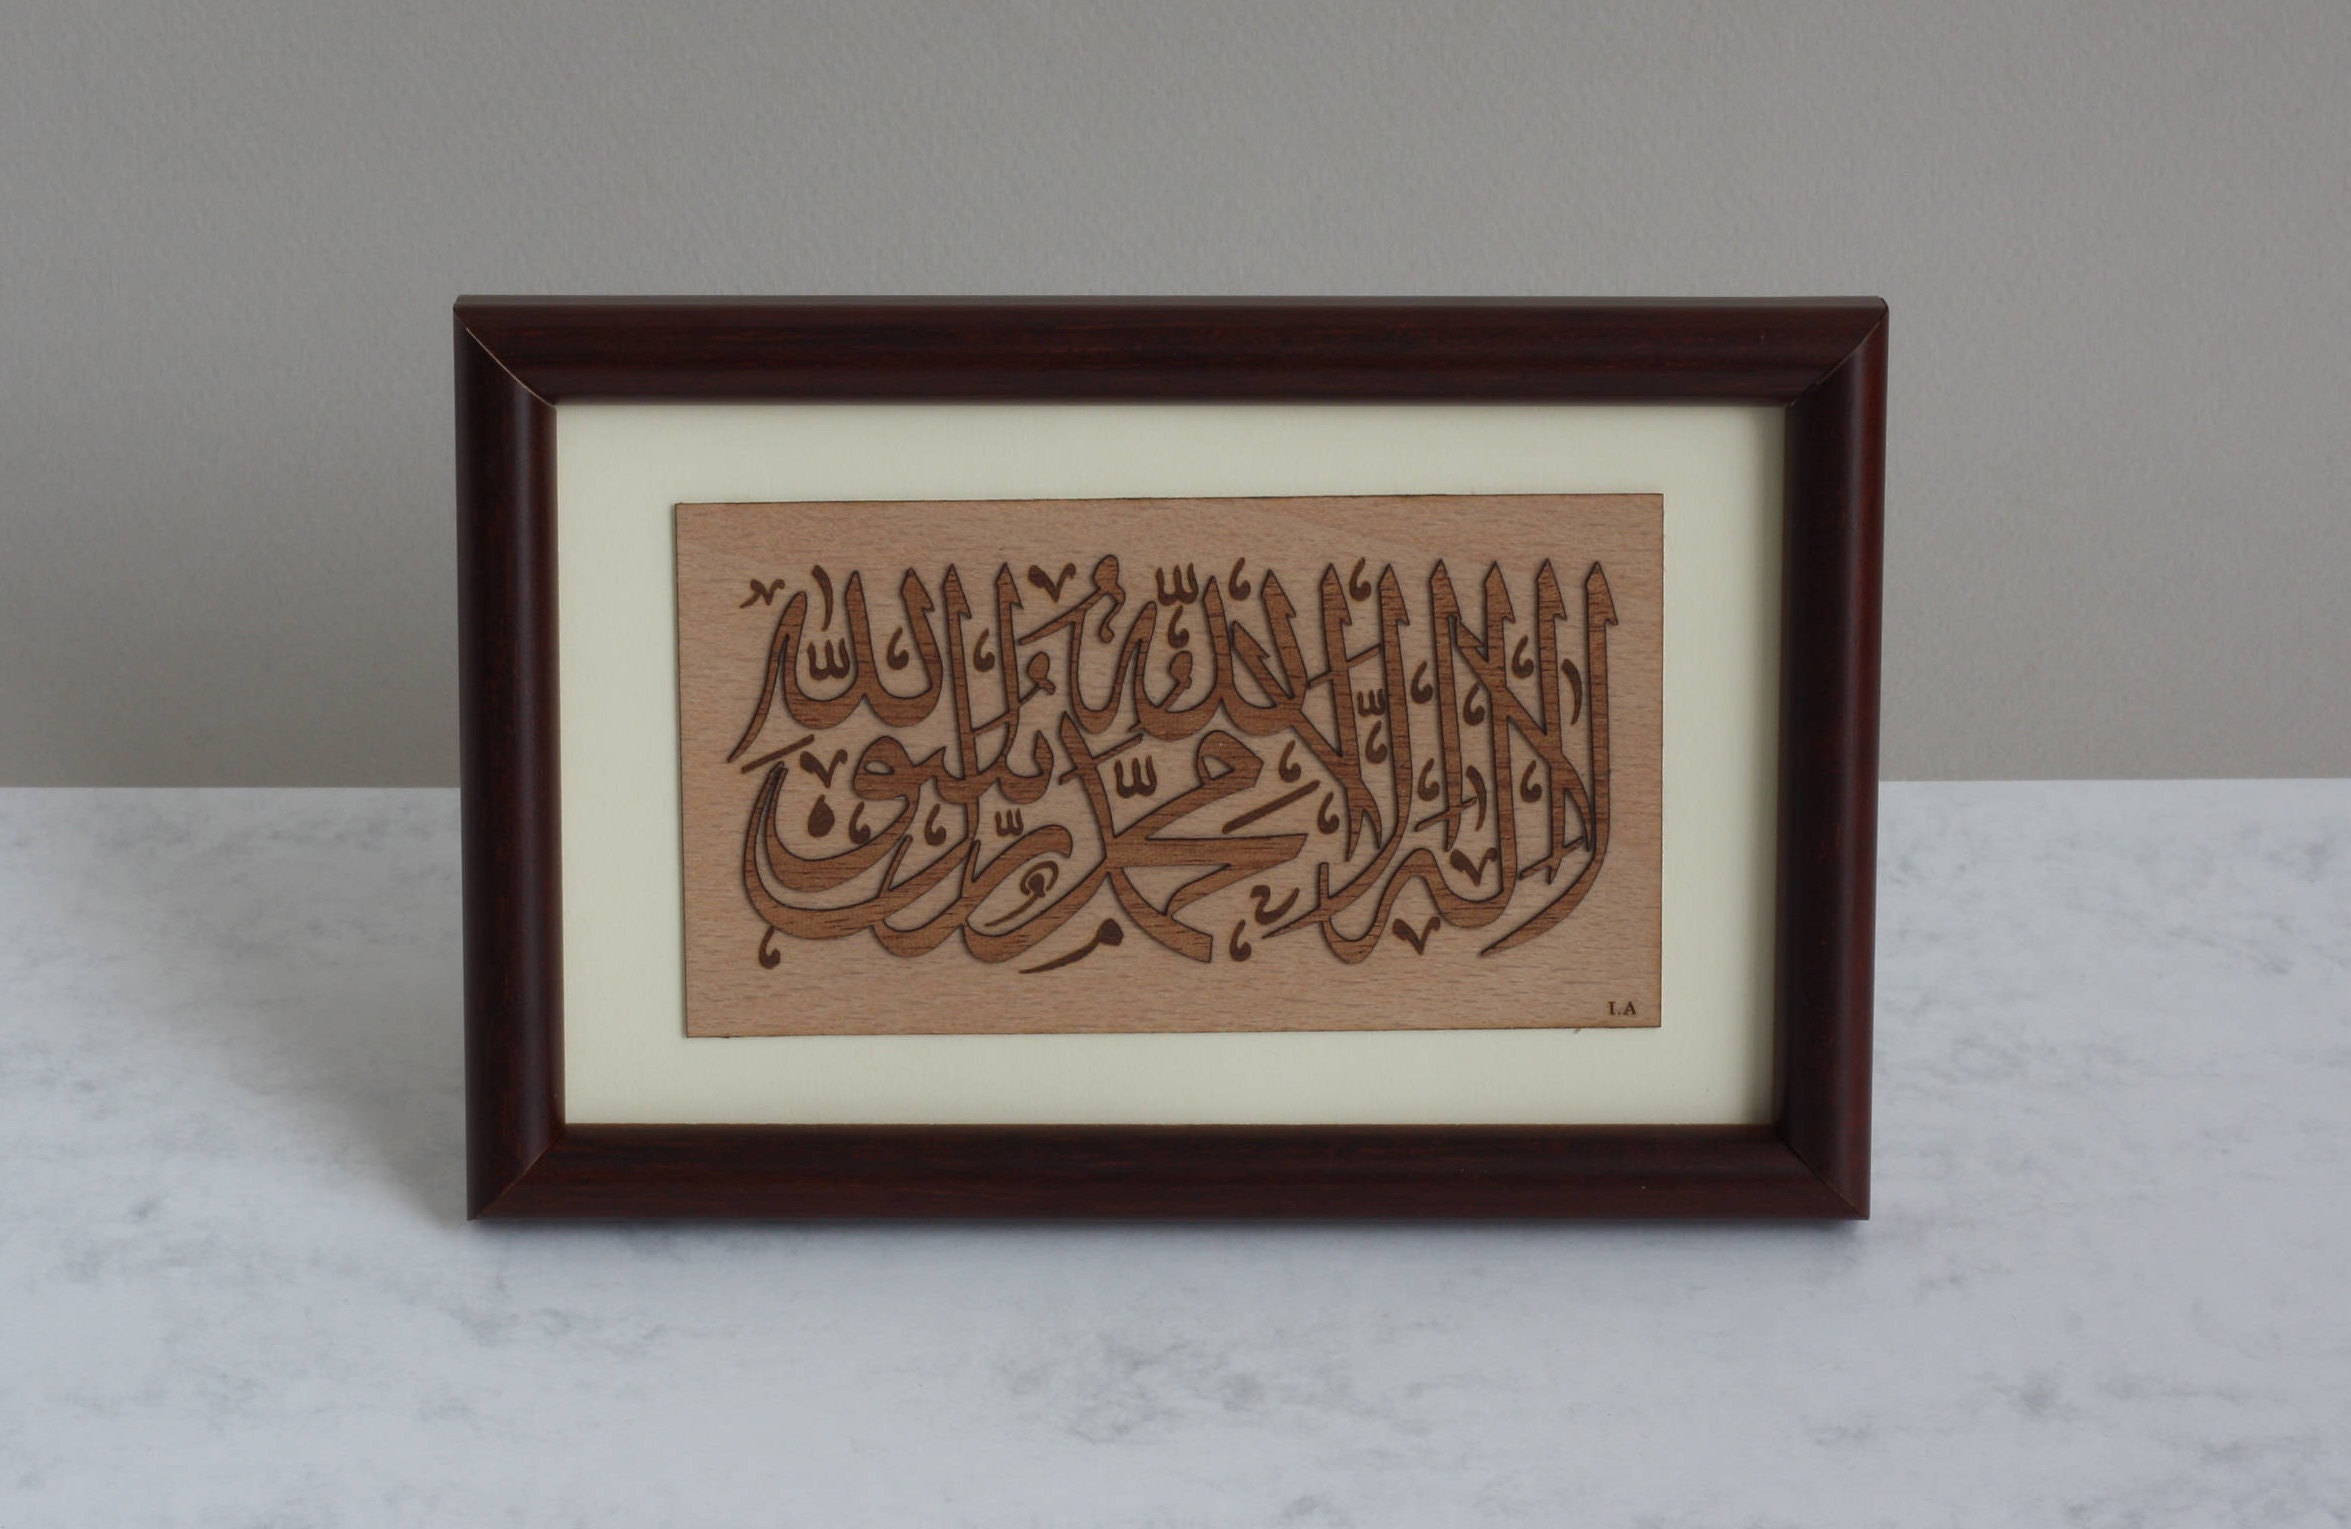 لا إله إلا الله محمد رسول الله
I.A